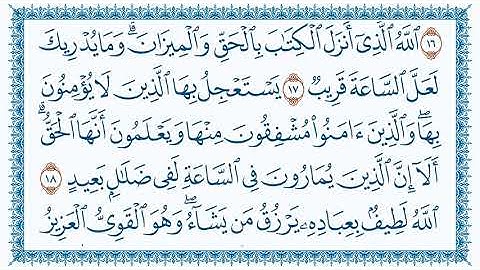 ١٦ ٱللَّهُ ٱلَّذِىٓ أَنزَلَ ٱلْكِتَٰبَ بِٱلْحَقِّ وَٱلْمِيزَانَ ۗ وَمَا يُدْرِيكَ
لَعَلَّ ٱلسَّاعَةَ قَرِيبٌ ١٧ يَسْتَعْجِلُ بِهَا ٱلَّذِينَ لَا يُؤْمِنُونَ
بِهَا ۖ وَٱلَّذِينَ ءَامَنُوا۟ مُشْفِقُونَ مِنْهَا وَيَعْلَمُونَ أَنَّهَا ٱلْحَقُّ ۗ
أَلَآ إِنَّ ٱلَّذِينَ يُمَارُونَ فِى ٱلسَّاعَةِ لَفِى ضَلَٰلٍۭ بَعِيدٍ ١٨
ٱللَّهُ لَطِيفٌۢ بِعِبَادِهِۦ يَرْزُقُ مَن يَشَآءُ ۖ وَهُوَ ٱلْقَوِىُّ ٱلْعَزِيزُ